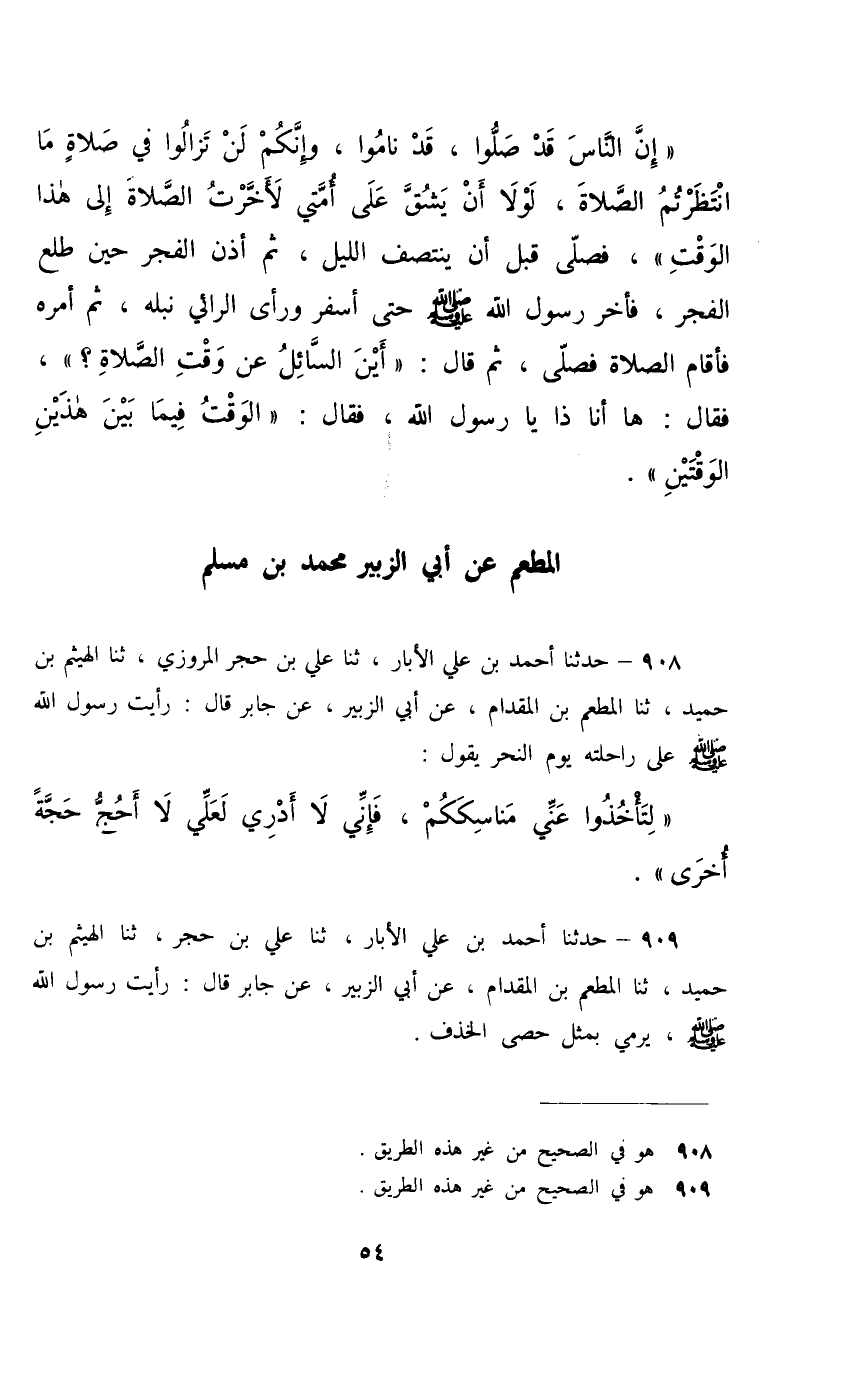 « إِنَّ النَّاسَ قَدْ صَلُّوا ، قَدْ نامُوا ، وإِنَّكُمْ لَنْ تَزالُوا في صَلاةٍ مَا
انْتَظَرْتُمُ الصَّلاةَ ، لَوْلَا أَنْ يَشُقَّ عَلَى أُمَّتي لَأَخَّرْتُ الصَّلاةَ إلى هٰذا
الوَقْتِ » ، فصلّى قبل أن ينتصف الليل ، ثم أذن الفجر حين طلع
الفجر ، فأخر رسول الله ﷺ حتى أسفر ورأى الرائي نبله ، ثم أمره
فأقام الصلاة فصلّى ، ثم قال : « أَيْنَ السَّائِلُ عن وَقْتِ الصَّلاةِ ؟ » ،
فقال : ها أنا ذا يا رسول الله ، فقال : « الوَقْتُ فِيمَا بَيْنَ هٰذَيْنِ
الوَقْتَيْنِ » .
المطعم عن أبي الزبير محمد بن مسلم
٩٠٨ – حدثنا أحمد بن علي الأبار ، ثنا علي بن حجر المروزي ، ثنا الهيثم بن
حميد ، ثنا المطعم بن المقدام ، عن أبي الزبير ، عن جابر قال : رأيت رسول الله
ﷺ على راحلته يوم النحر يقول :
« لِتَأْخُذُوا عَنِّي مَناسِكَكُمْ ، فَإِنِّي لَا أَدْرِي لَعَلِّي لَا أَحُجُّ حَجَّةً
أُخرَى » .
٩٠٩ – حدثنا أحمد بن علي الأبار ، ثنا علي بن حجر ، ثنا الهيثم بن
حميد ، ثنا المطعم بن المقدام ، عن أبي الزبير ، عن جابر قال : رأيت رسول الله
ﷺ ، يرمي بمثل حصى الخذف .
٩٠٨ هو في الصحيح من غير هذه الطريق .
٩٠٩ هو في الصحيح من غير هذه الطريق .
٥٤